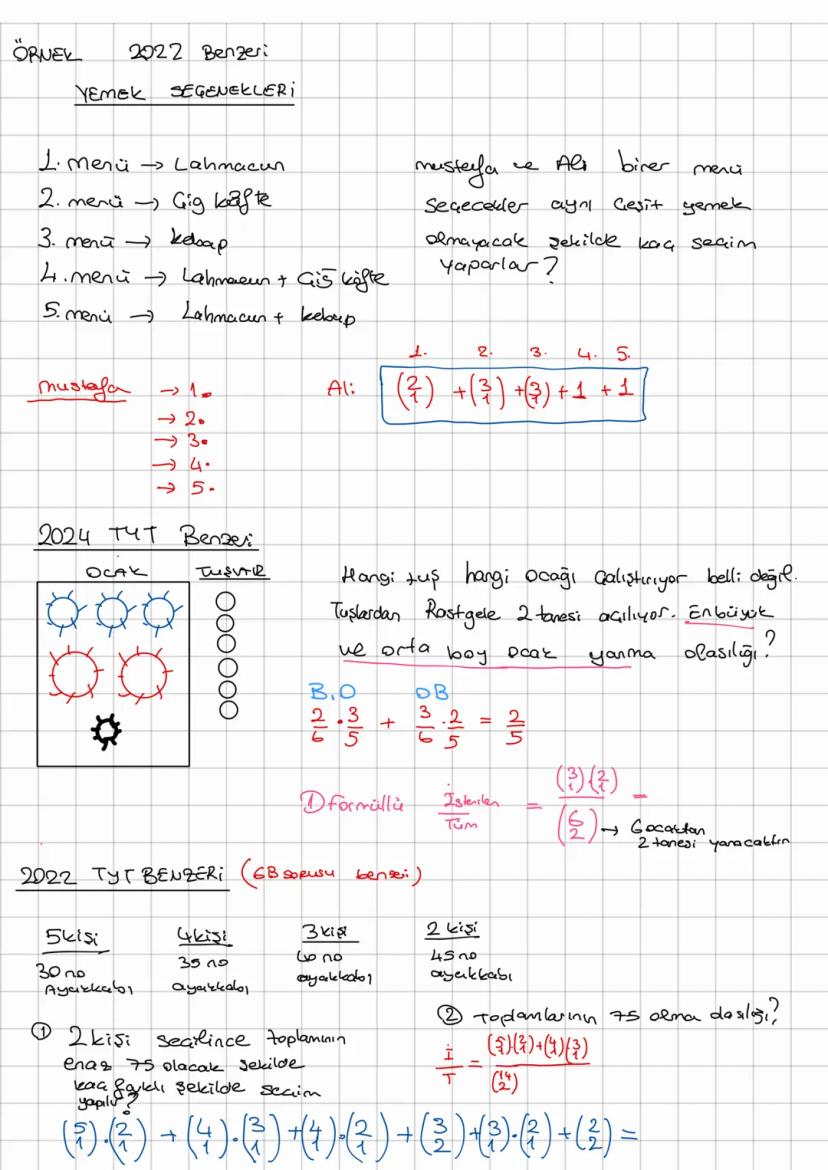 ÖRNEK 2022 Benzeri
YEMEK SEÇENEKLERİ
1. menü → Lahmacun
2. menü → Çiğ köfte
3. menü → kebap
4. menü → Lahmacun + Çiğ köfte
5. menü → Lahmacun + kebap
mustafa ve Ali birer menü
seçecekler aynı çeşit yemek
olmayacak şekilde kaç seçim
yaparlar?
mustafa → 1.
→ 2.
→ 3.
→ 4.
→ 5.
1. 2. 3. 4. 5.
Ali: (2 1) + (3 1) + (3 1) + 1 + 1
2024 TYT Benzeri
OCAK TUŞLAR
Hangi tuş hangi ocağı çalıştırıyor belli değil.
Tuşlardan Rastgele 2 tanesi açılıyor. En büyük
ve orta boy ocak yanma olasılığı?
B.O OB
2/6 · 3/5 + 3/6 · 2/5 = 2/5
① formüllü İstenilen/Tüm = (3 1)(2 1)/(6 2) =
→ 6 ocaktan
2 tanesi yanacaktır
2022 TYT BENZERİ (GB sorusu benzeri)
5 kişi
30 no
Ayakkabı
4 kişi
35 no
ayakkabı
3 kişi
40 no
ayakkabı
2 kişi
45 no
ayakkabı
① 2 kişi seçilince toplamının
en az 75 olacak şekilde
kaç farklı şekilde seçim
yapılır?
② Toplamlarının 75 olma olasılığı?
İ/T = (5 1)(2 1)+(4 1)(3 1)/(14 2)
(5 1).(2 1) + (4 1).(3 1) + (4 1).(2 1) + (3 2) + (3 1).(2 1) + (2 2) =